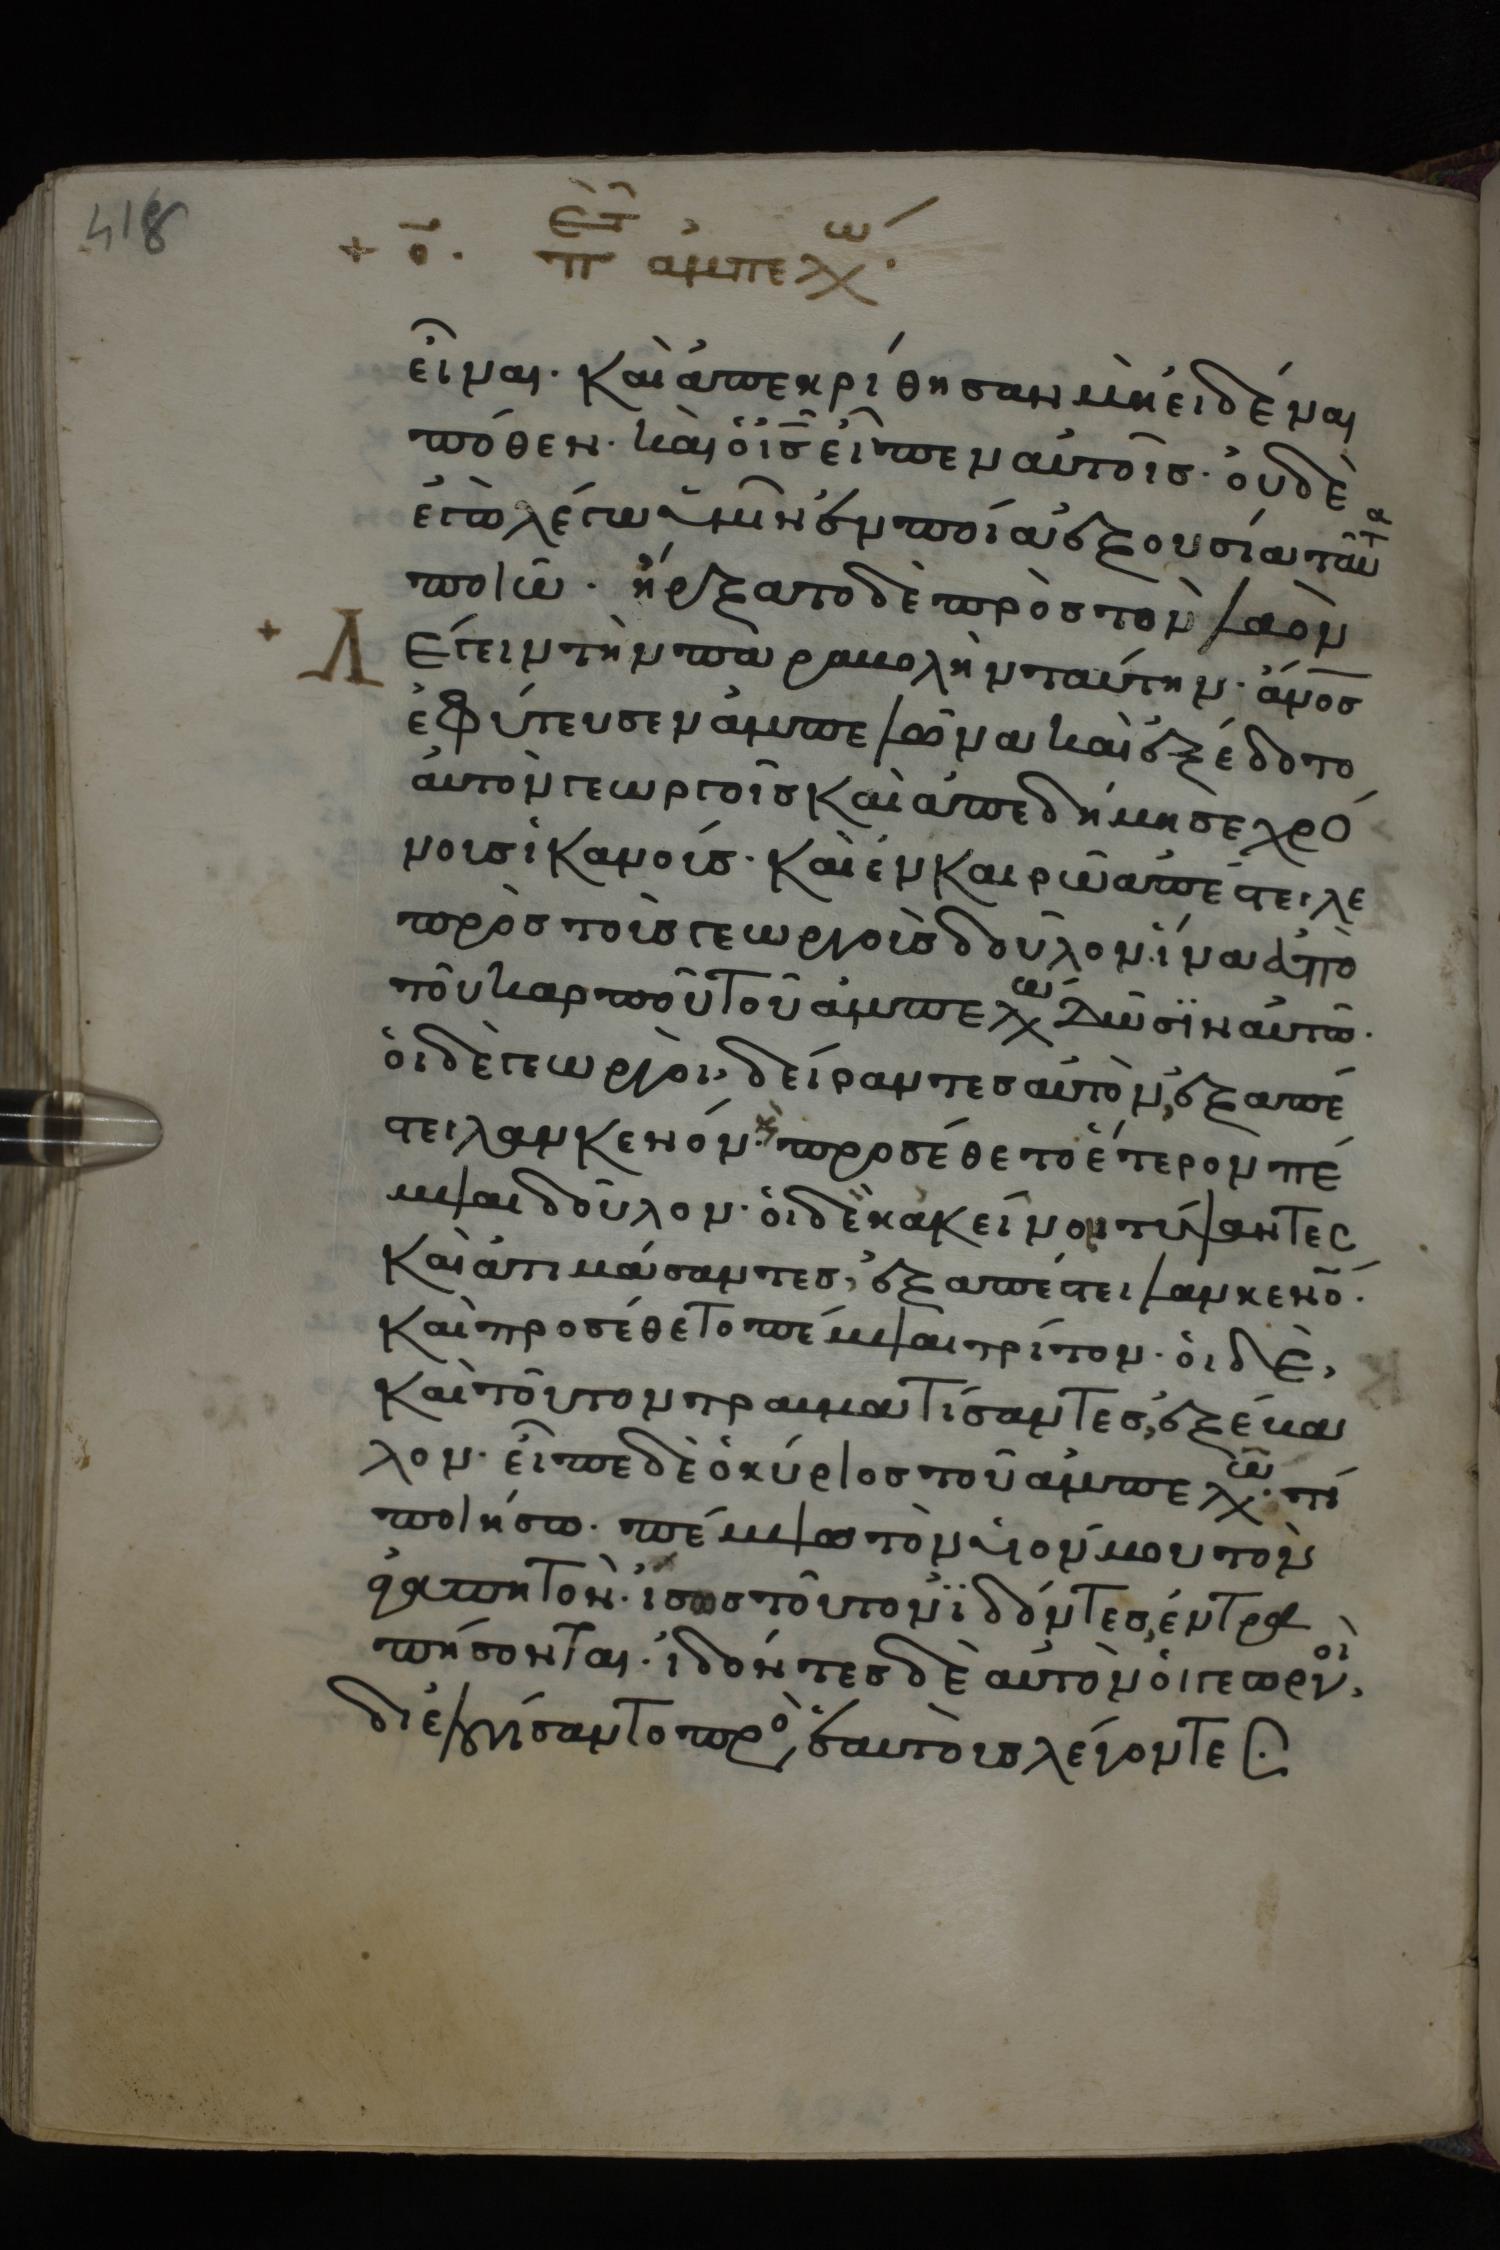 418
+ ο̄. ἐπὶ π ἀμπελῶ.
εἶναι· καὶ ἀπεκρίθησαν μὴ εἰδέναι
πόθεν· καὶ ὁ ις̄ εἶπεν αὐτοῖς· οὐδὲ
ἐγὼ λέγω ὑμῖν ἐν ποία ἐξουσία ταῦτα
ποιῶ· ἤρξατο δὲ πρὸς τὸν λαὸν
+ Λέγειν τὴν παραβολὴν ταύτην· ἄνος
ἐφύτευσεν ἀμπελῶνα καὶ ἐξέδοτο
αὐτὸν γεωργοῖς καὶ ἀπεδήμησε χρό
νους ἱκανούς· καὶ ἐν καιρῶ ἀπέστειλε
πρὸς τοὺς γεωργοὺς δοῦλον ἵνα ἀπὸ
τοῦ καρποῦ τοῦ ἀμπελῶ δῶσϊν αὐτῶ·
οἱ δὲ γεωργοὶ, δείραντες αὐτὸν, ἐξαπέ
στειλαν κενόν· καὶ προσέθετο ἕτερον πέ
μψαι δοῦλον· οἱ δὲ κἀκεῖνον τύψαντες
καὶ ἀτιμάσαντες, ἐξαπέστειλαν κενό·
καὶ προσέθετο πέμψαι τρίτον· οἱ δὲ,
καὶ τοῦτον τραυματίσαντες, ἐξέβα
λον· εἶπε δὲ ὁ κύριος τοῦ ἀμπελῶ· τί
ποιήσω· πέμψω τὸν υἱόν μου τὸν
ἀγαπητὸν· ἴσως τοῦτον ϊδόντες, ἐντρα
πήσονται· ἰδόντες δὲ αὐτὸν οἱ γεωργοὶ,
διελογίσαντο πρὸς ἑαυτοὺς λέγοντες·